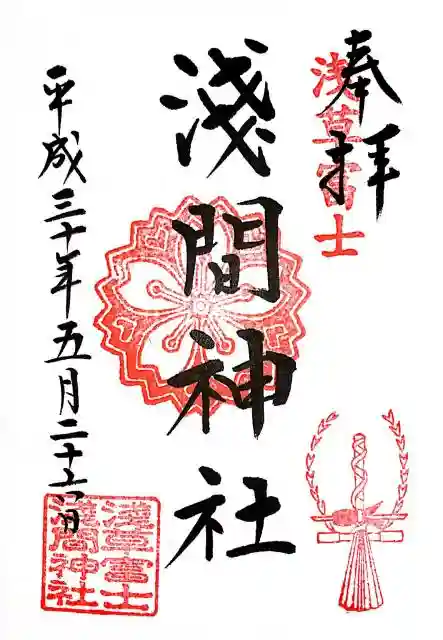 奉拝
浅草富士
淺間神社
平成三十年五月二十六日
浅草富士
淺間神社